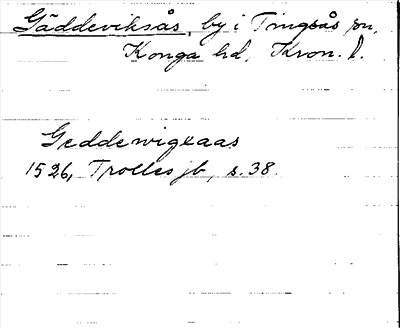 Gäddeviksås, by i Tingsås sn,
Konga hd, Kron. l.
Geddewigxaas
1526, Trolles jb, s. 38.